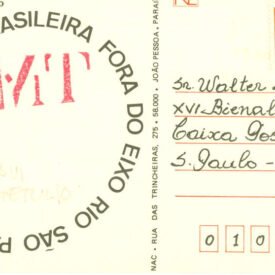 ASILEIRA FORA DO EIXO RIO SÃO P
MT
NAC - RUA DAS TRINCHEIRAS, 275 - 58.000 - JOÃO PESSOA - PARAÍ
Sr. Walter
XVI Bienal
Caixa Pos
S. Paulo -
0 1 0